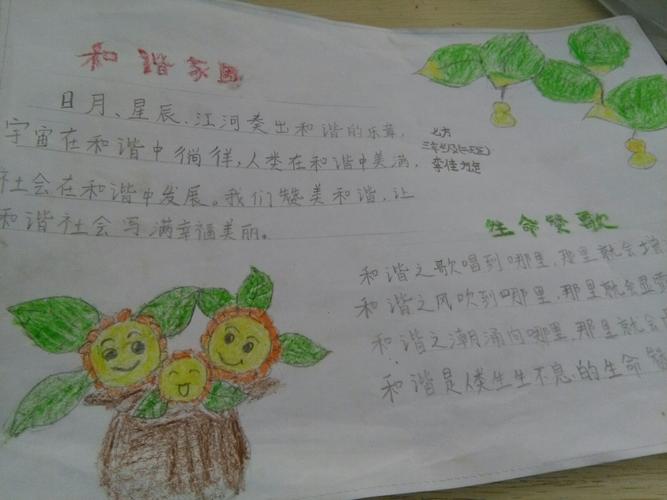 和谐家园
日月、星辰、江河奏出和谐的乐章,
宇宙在和谐中徜徉,人类在和谐中美满,
社会在和谐中发展。我们赞美和谐,让
和谐社会写满幸福美丽。
三年级(二班)
李佳
生命赞歌
和谐之歌唱到哪里,那里就会
和谐之风吹到哪里,那里就会显
和谐之潮涌向哪里,那里就会
和谐是人类生生不息的生命